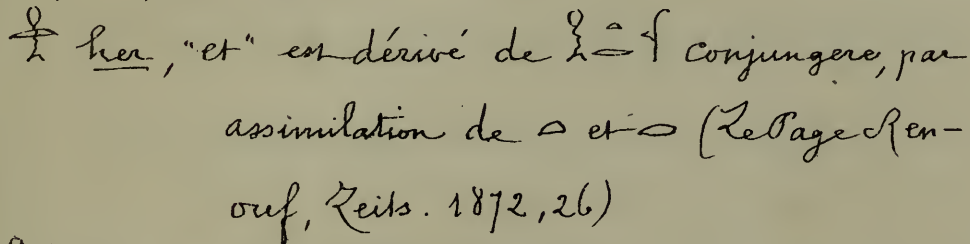 𓁷 her, "et" est dérivé de 𓎛𓏏𓂋 conjungere, par
assimilation de 𓏏 et 𓂋 (LePage Ren-
ouf, Zeits. 1872, 26)